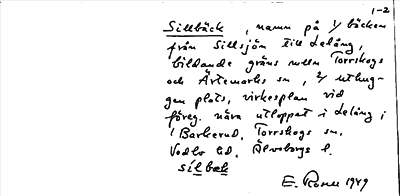 1-2
Sillbäck, namn på 1/ bäcken
från Sillsjön till Lelång,
bildande gräns mellan Torrskogs
och Ärtemarks sn, 2/ uthug-
gen plats, virkesplan vid
föreg. nära utloppet i Lelång i
Barkerud, Torrskogs sn.
Vedbo hd. Älvsborgs l.
silbæk
E. Rosell 1949